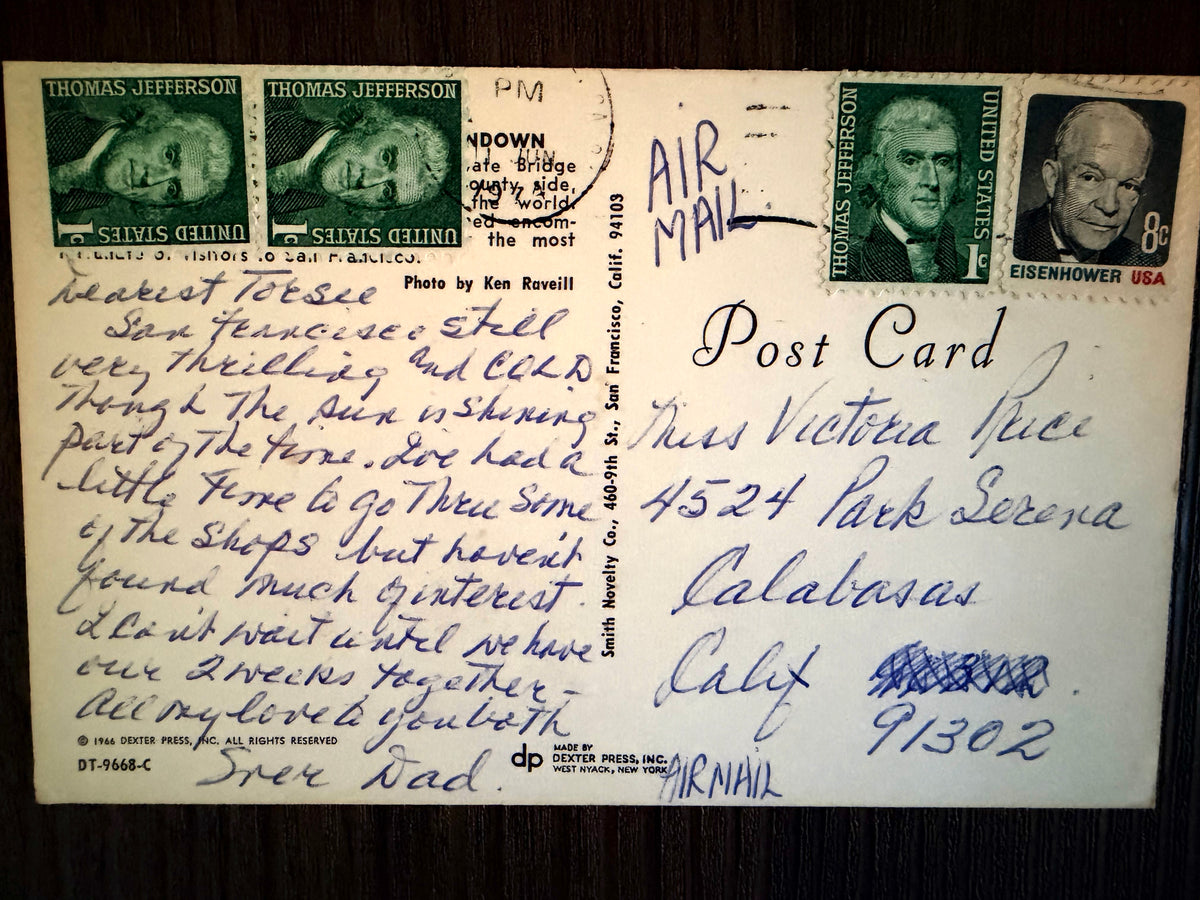 THOMAS JEFFERSON
UNITED STATES
1c
THOMAS JEFFERSON
UNITED STATES
1c
PM
11 JUN
197
NDOWN
ate Bridge
ounty side,
the world
ed encom-
the most
visitors to San Francisco.
Photo by Ken Raveill
Dearest Torsie
San Francisco still
very thrilling and COLD
Though The sun is shining
part of The time. I've had a
little time to go Thru Some
of The Shops but haven't
found much of interest.
I can't wait until we have
our 2 weeks together -
All my love to you both
Dad.
© 1966 DEXTER PRESS, INC. ALL RIGHTS RESERVED
DT-9668-C
dp
MADE BY
DEXTER PRESS, INC.
WEST NYACK, NEW YORK
Smith Novelty Co., 460-9th St., San Francisco, Calif. 94103
AIR
MAIL
THOMAS JEFFERSON
UNITED STATES
1c
8c
EISENHOWER USA
Post Card
Miss Victoria
4524 Park Serena
Calabasas
Calif
91302
AIRMAIL